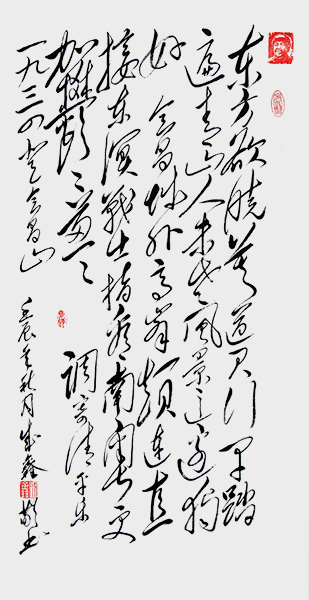 东方欲晓莫道君行早踏
遍青山人未老风景这边独
好 会昌城外高峯颠连直
接东溟戰士指看南粤更
加欝〻葱〻
一九三四登会昌山
调寄清平乐
壬辰秋月成鑫书